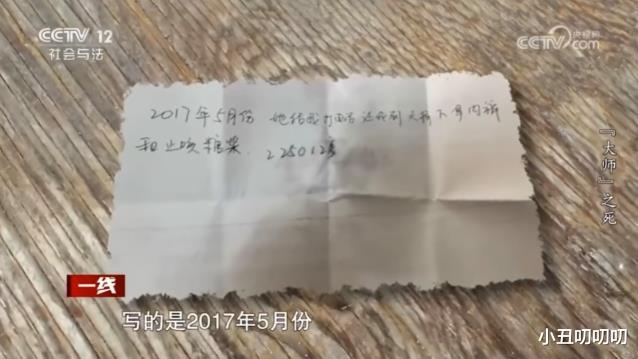 CCTV 12
社会与法
央视网
CCTV.com
2017年5月份 她给我打电话 送我到天桥下拿内裤
和止咳糖浆. 225012
『大师』之死
一线
写的是2017年5月份
小丑叨叨叨